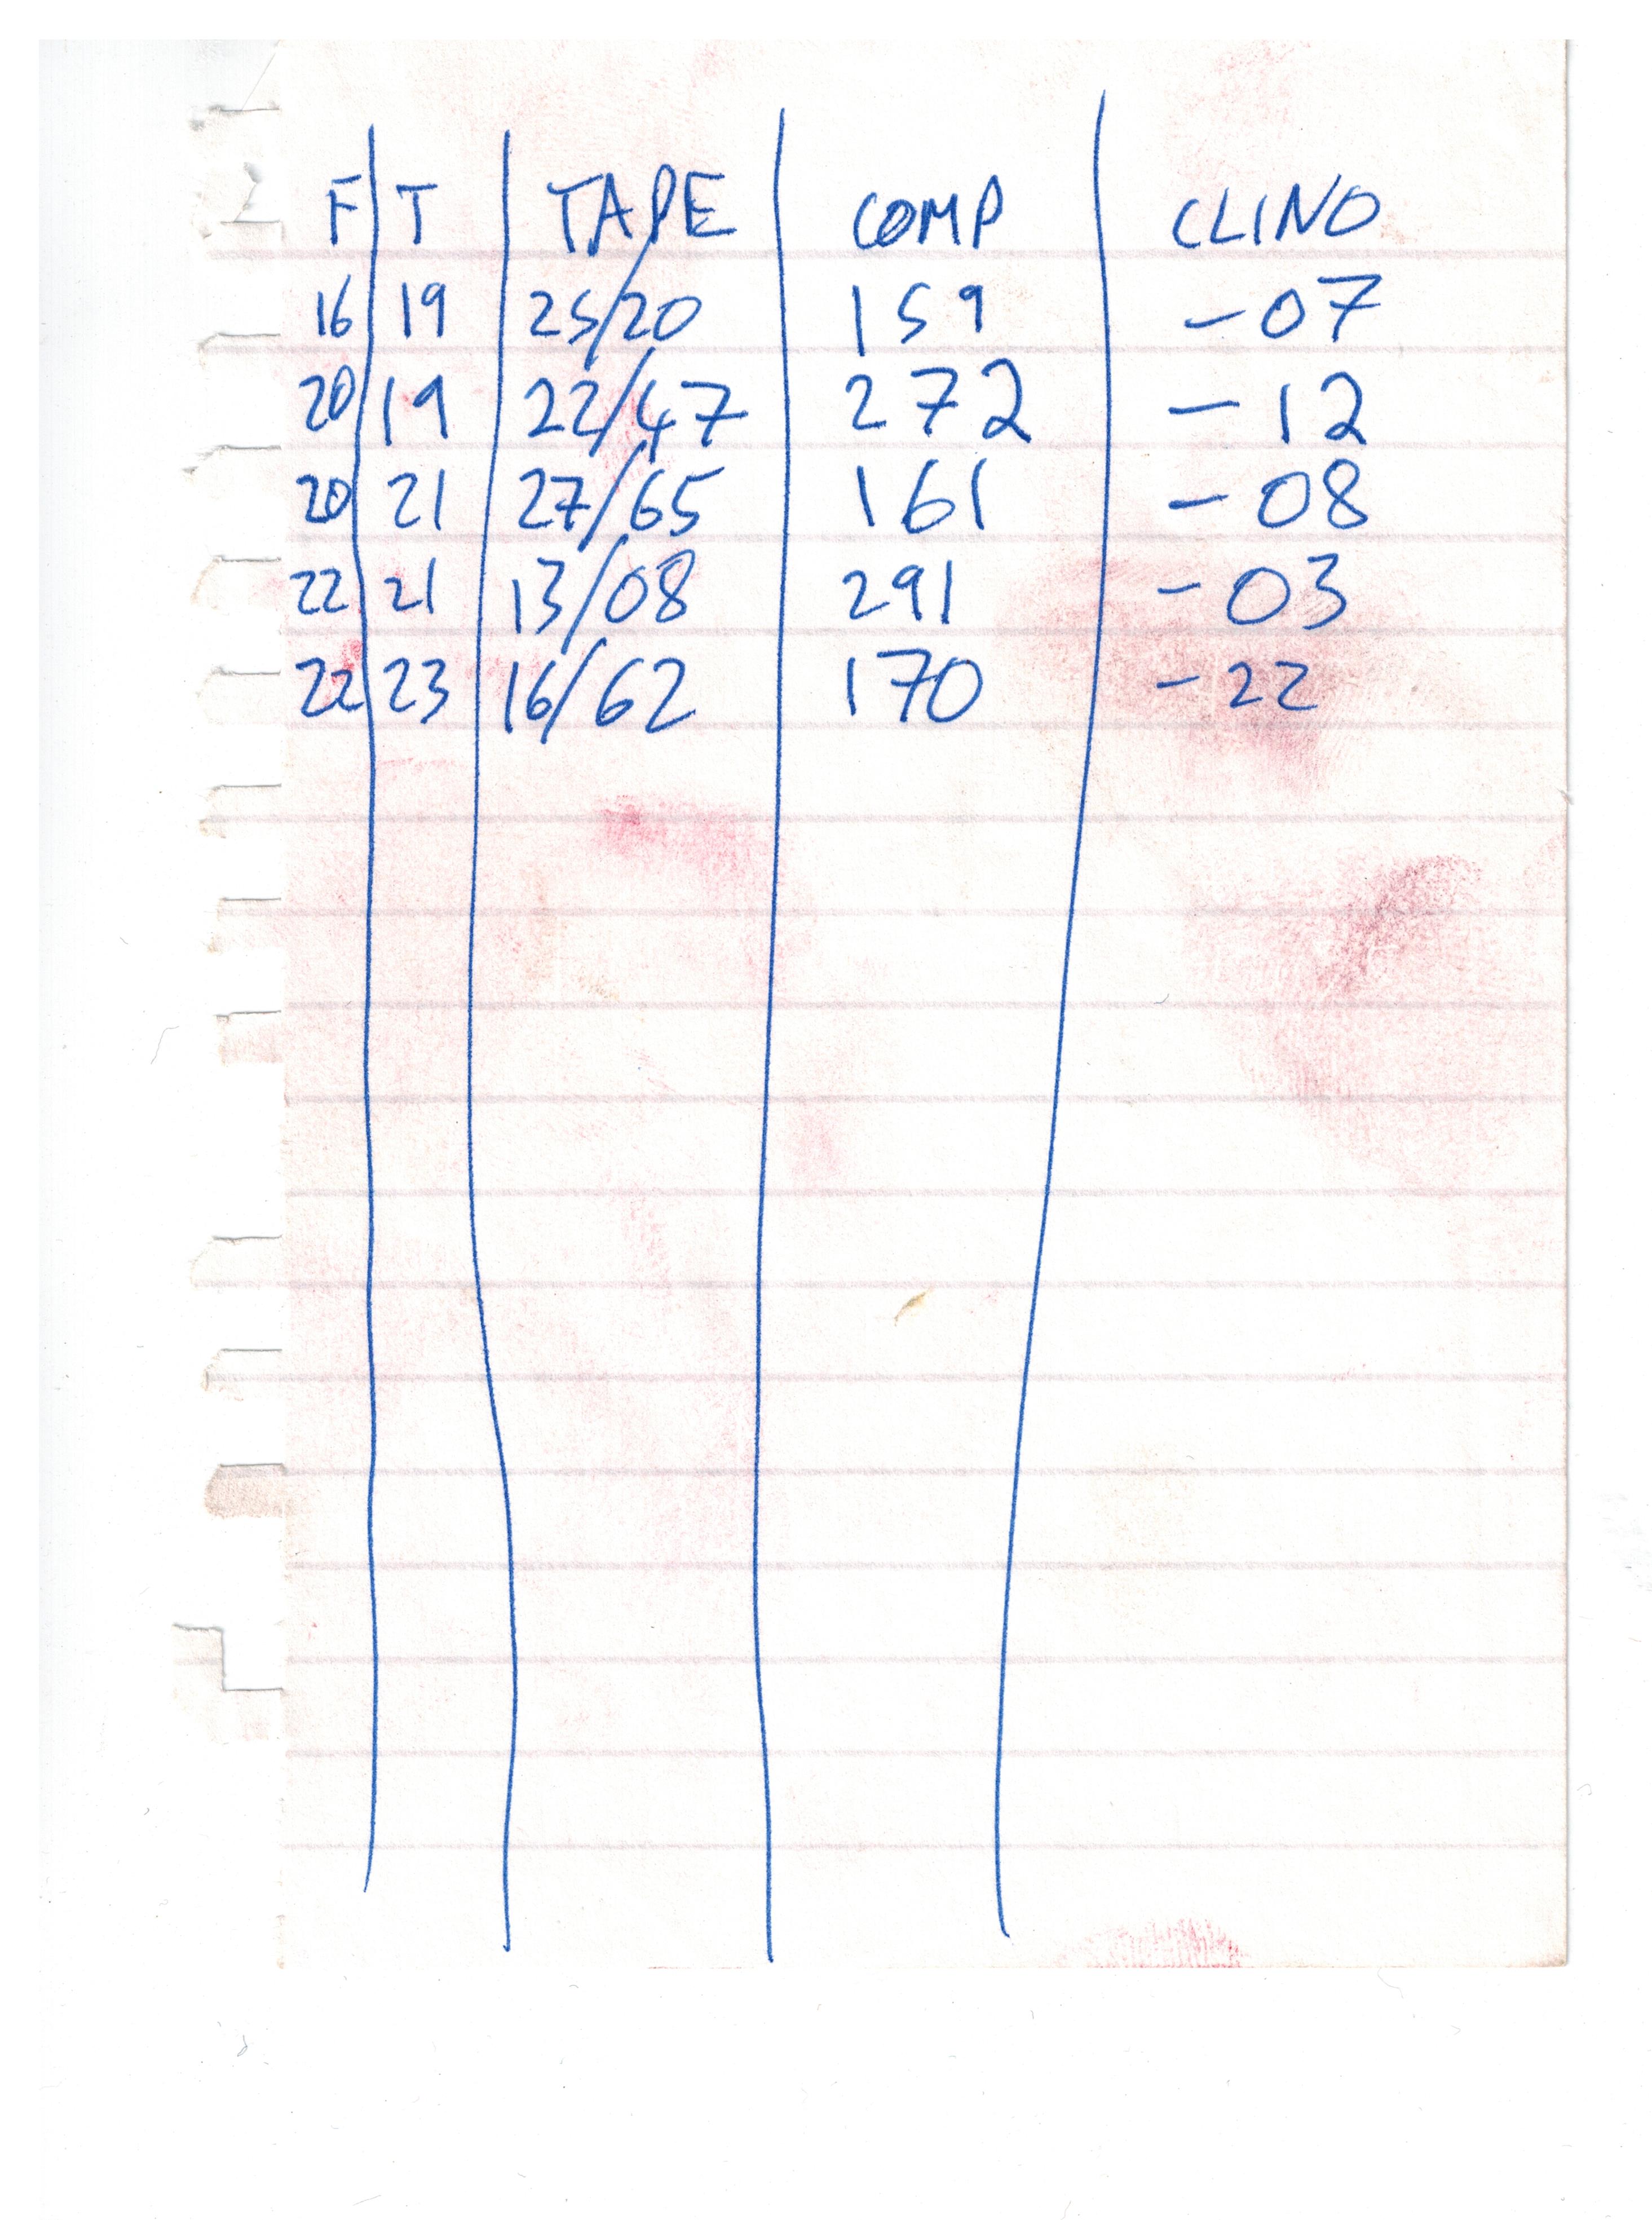 F T TAPE COMP CLINO
16 19 25/20 159 -07
20 19 22/47 272 -12
20 21 27/65 161 -08
22 21 13/08 291 -03
22 23 16/62 170 -22